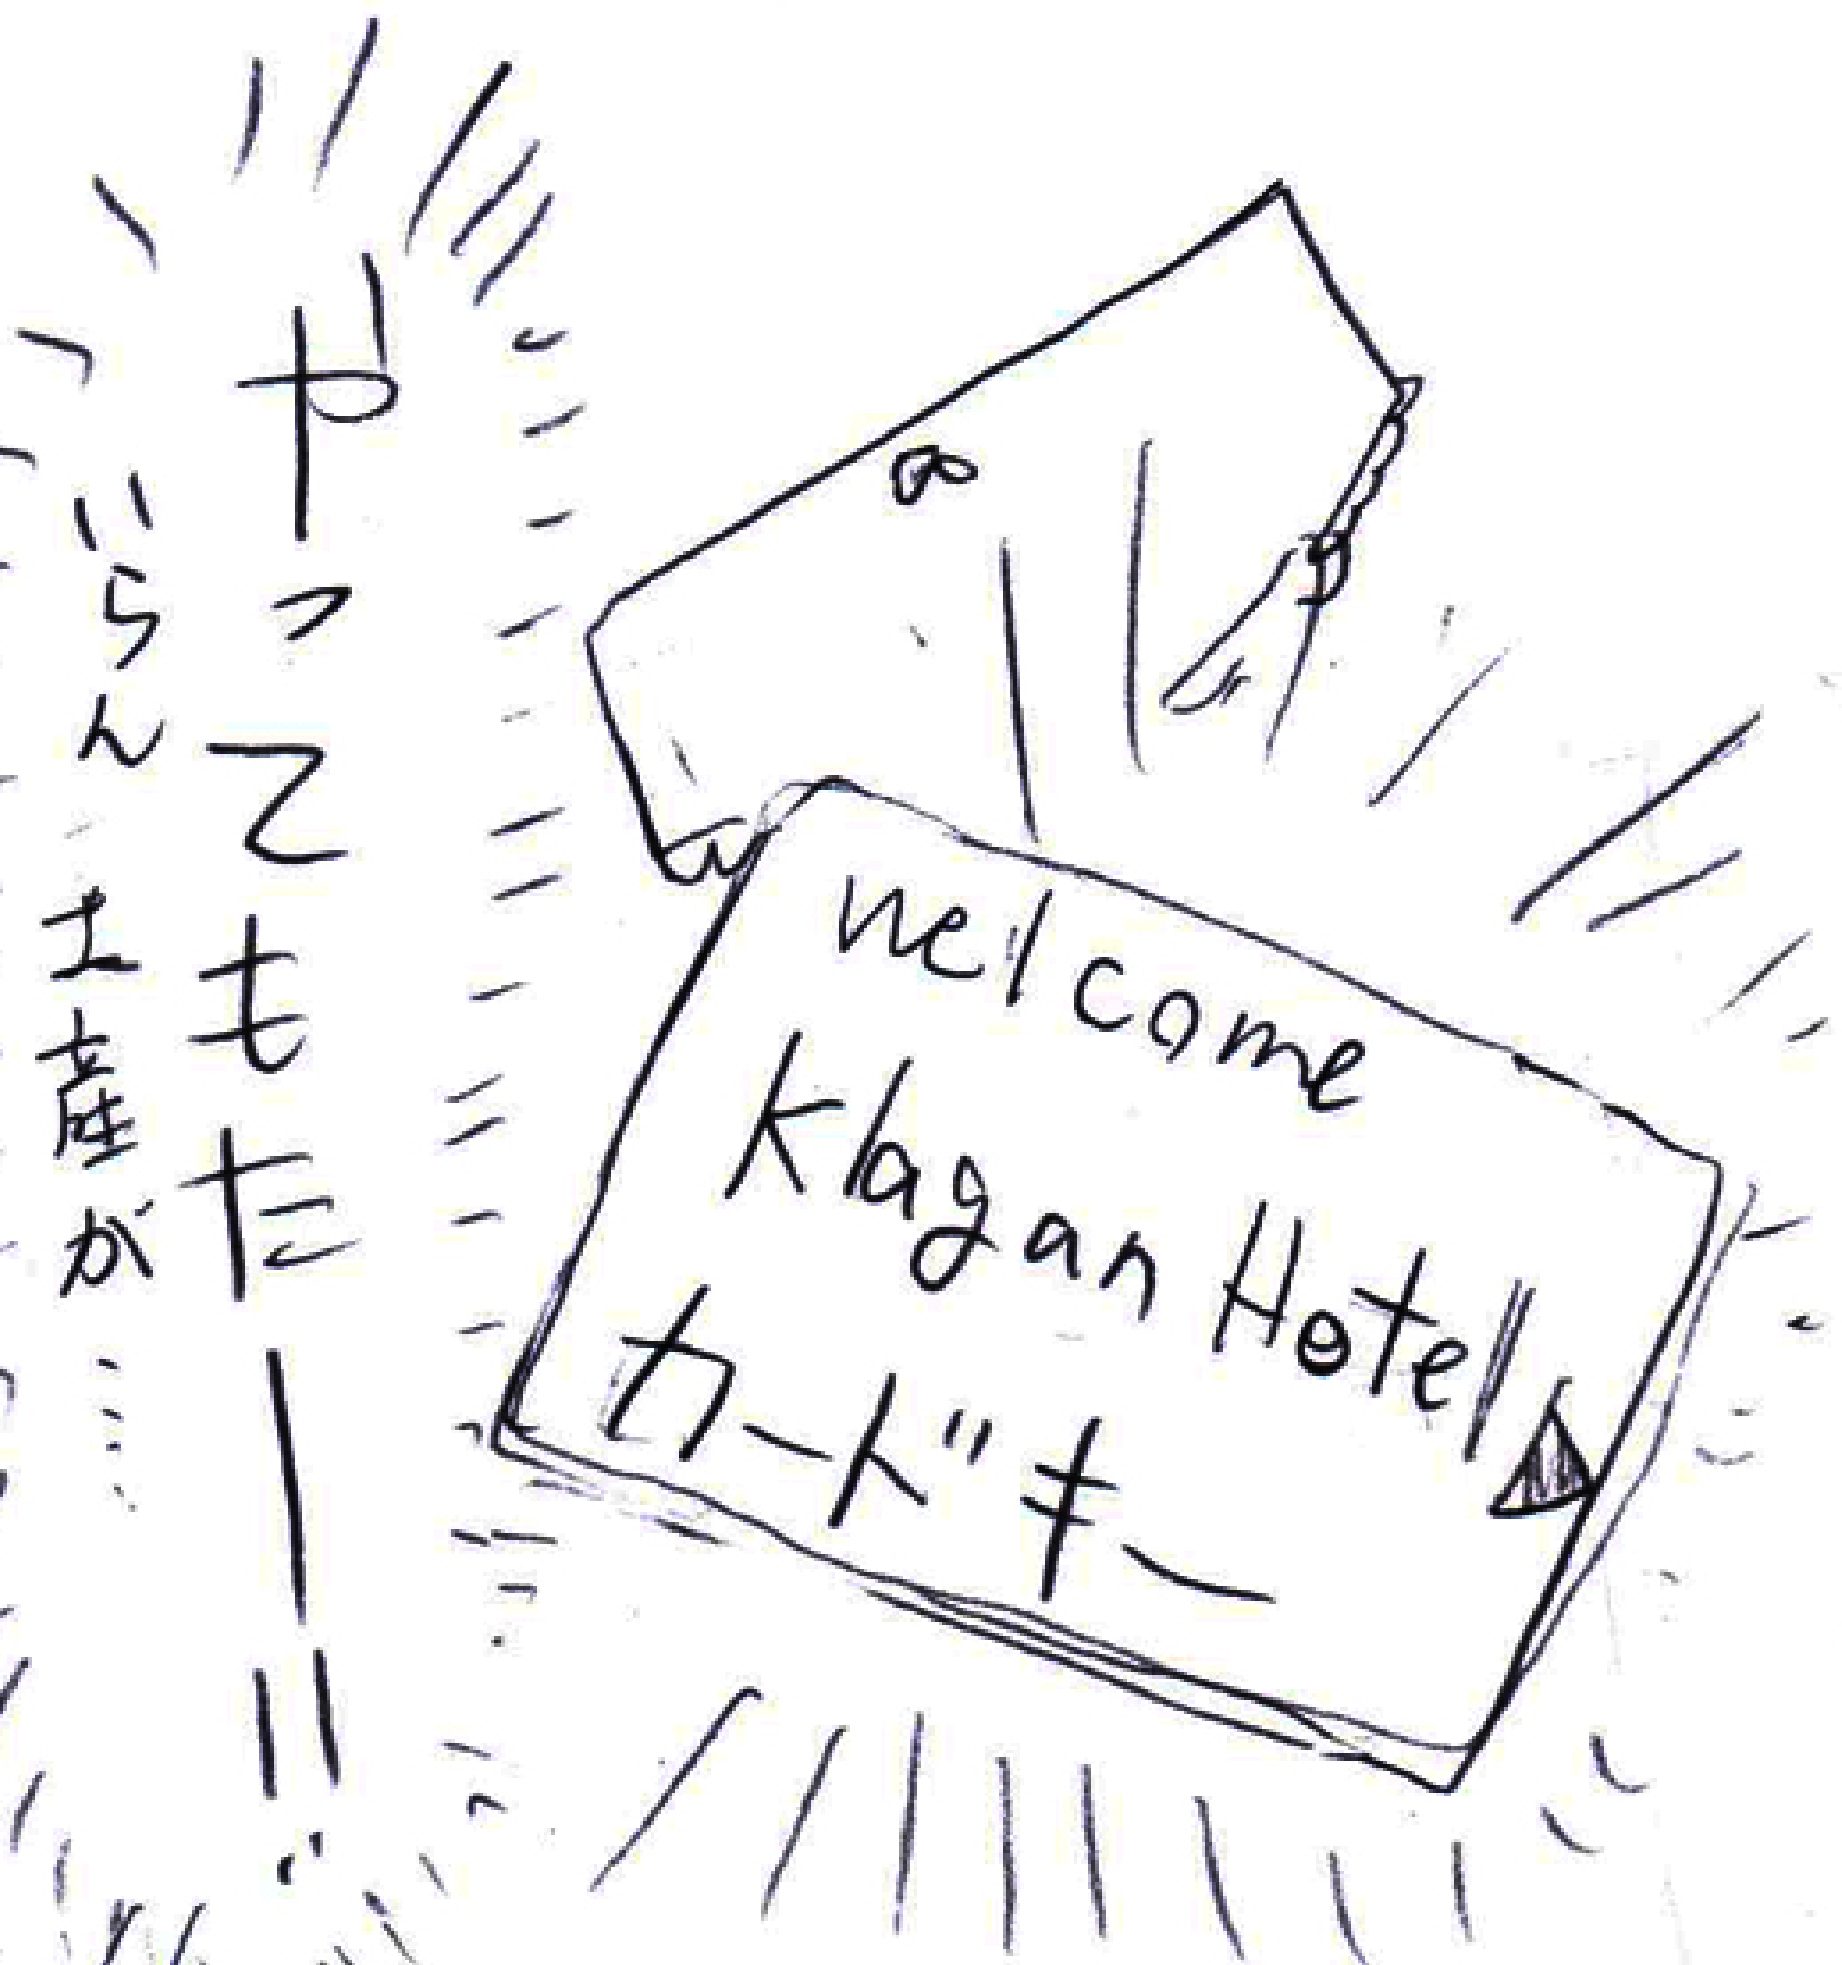 やってもたー!!
いらん土産が…
welcome
Klagan Hotel
カードキー